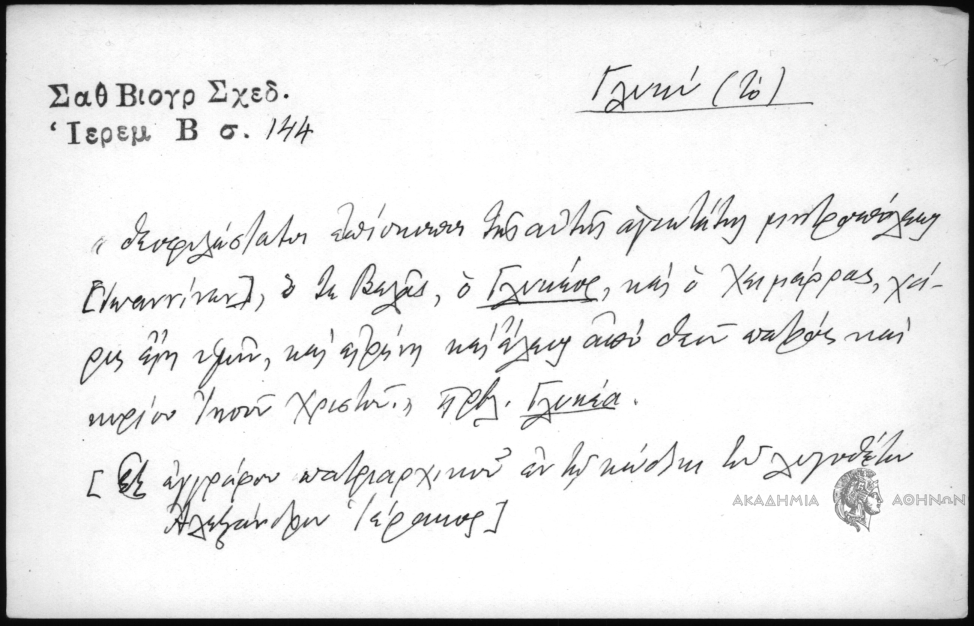 Σαθ Βιογρ Σχεδ.
Ἱερεμ Β σ. 144
Γλυκύ (τὸ)
"θεοφιλέστατοι ἐπίσκοποι τῆς αὐτῆς ἁγιωτάτης μητροπόλεως
[Ἰωαννίνων], ὅ τε Βελᾶς, ὁ Γλυκέος, καὶ ὁ Χειμάρρας, χά-
ρις εἴη ὑμῖν, καὶ εἰρήνη καὶ ἔλεος ἀπὸ θεοῦ πατρὸς καὶ
κυρίου Ἰησοῦ Χριστοῦ." πρβλ. Γλυκέα.
[Ἐξ ἐγγράφου πατριαρχικοῦ ἐν τῷ κώδικι τοῦ λογοθέτου
Ἀλεξάνδρου Ἱέρακος]
ΑΚΑΔΗΜΙΑ ΑΘΗΝΩΝ